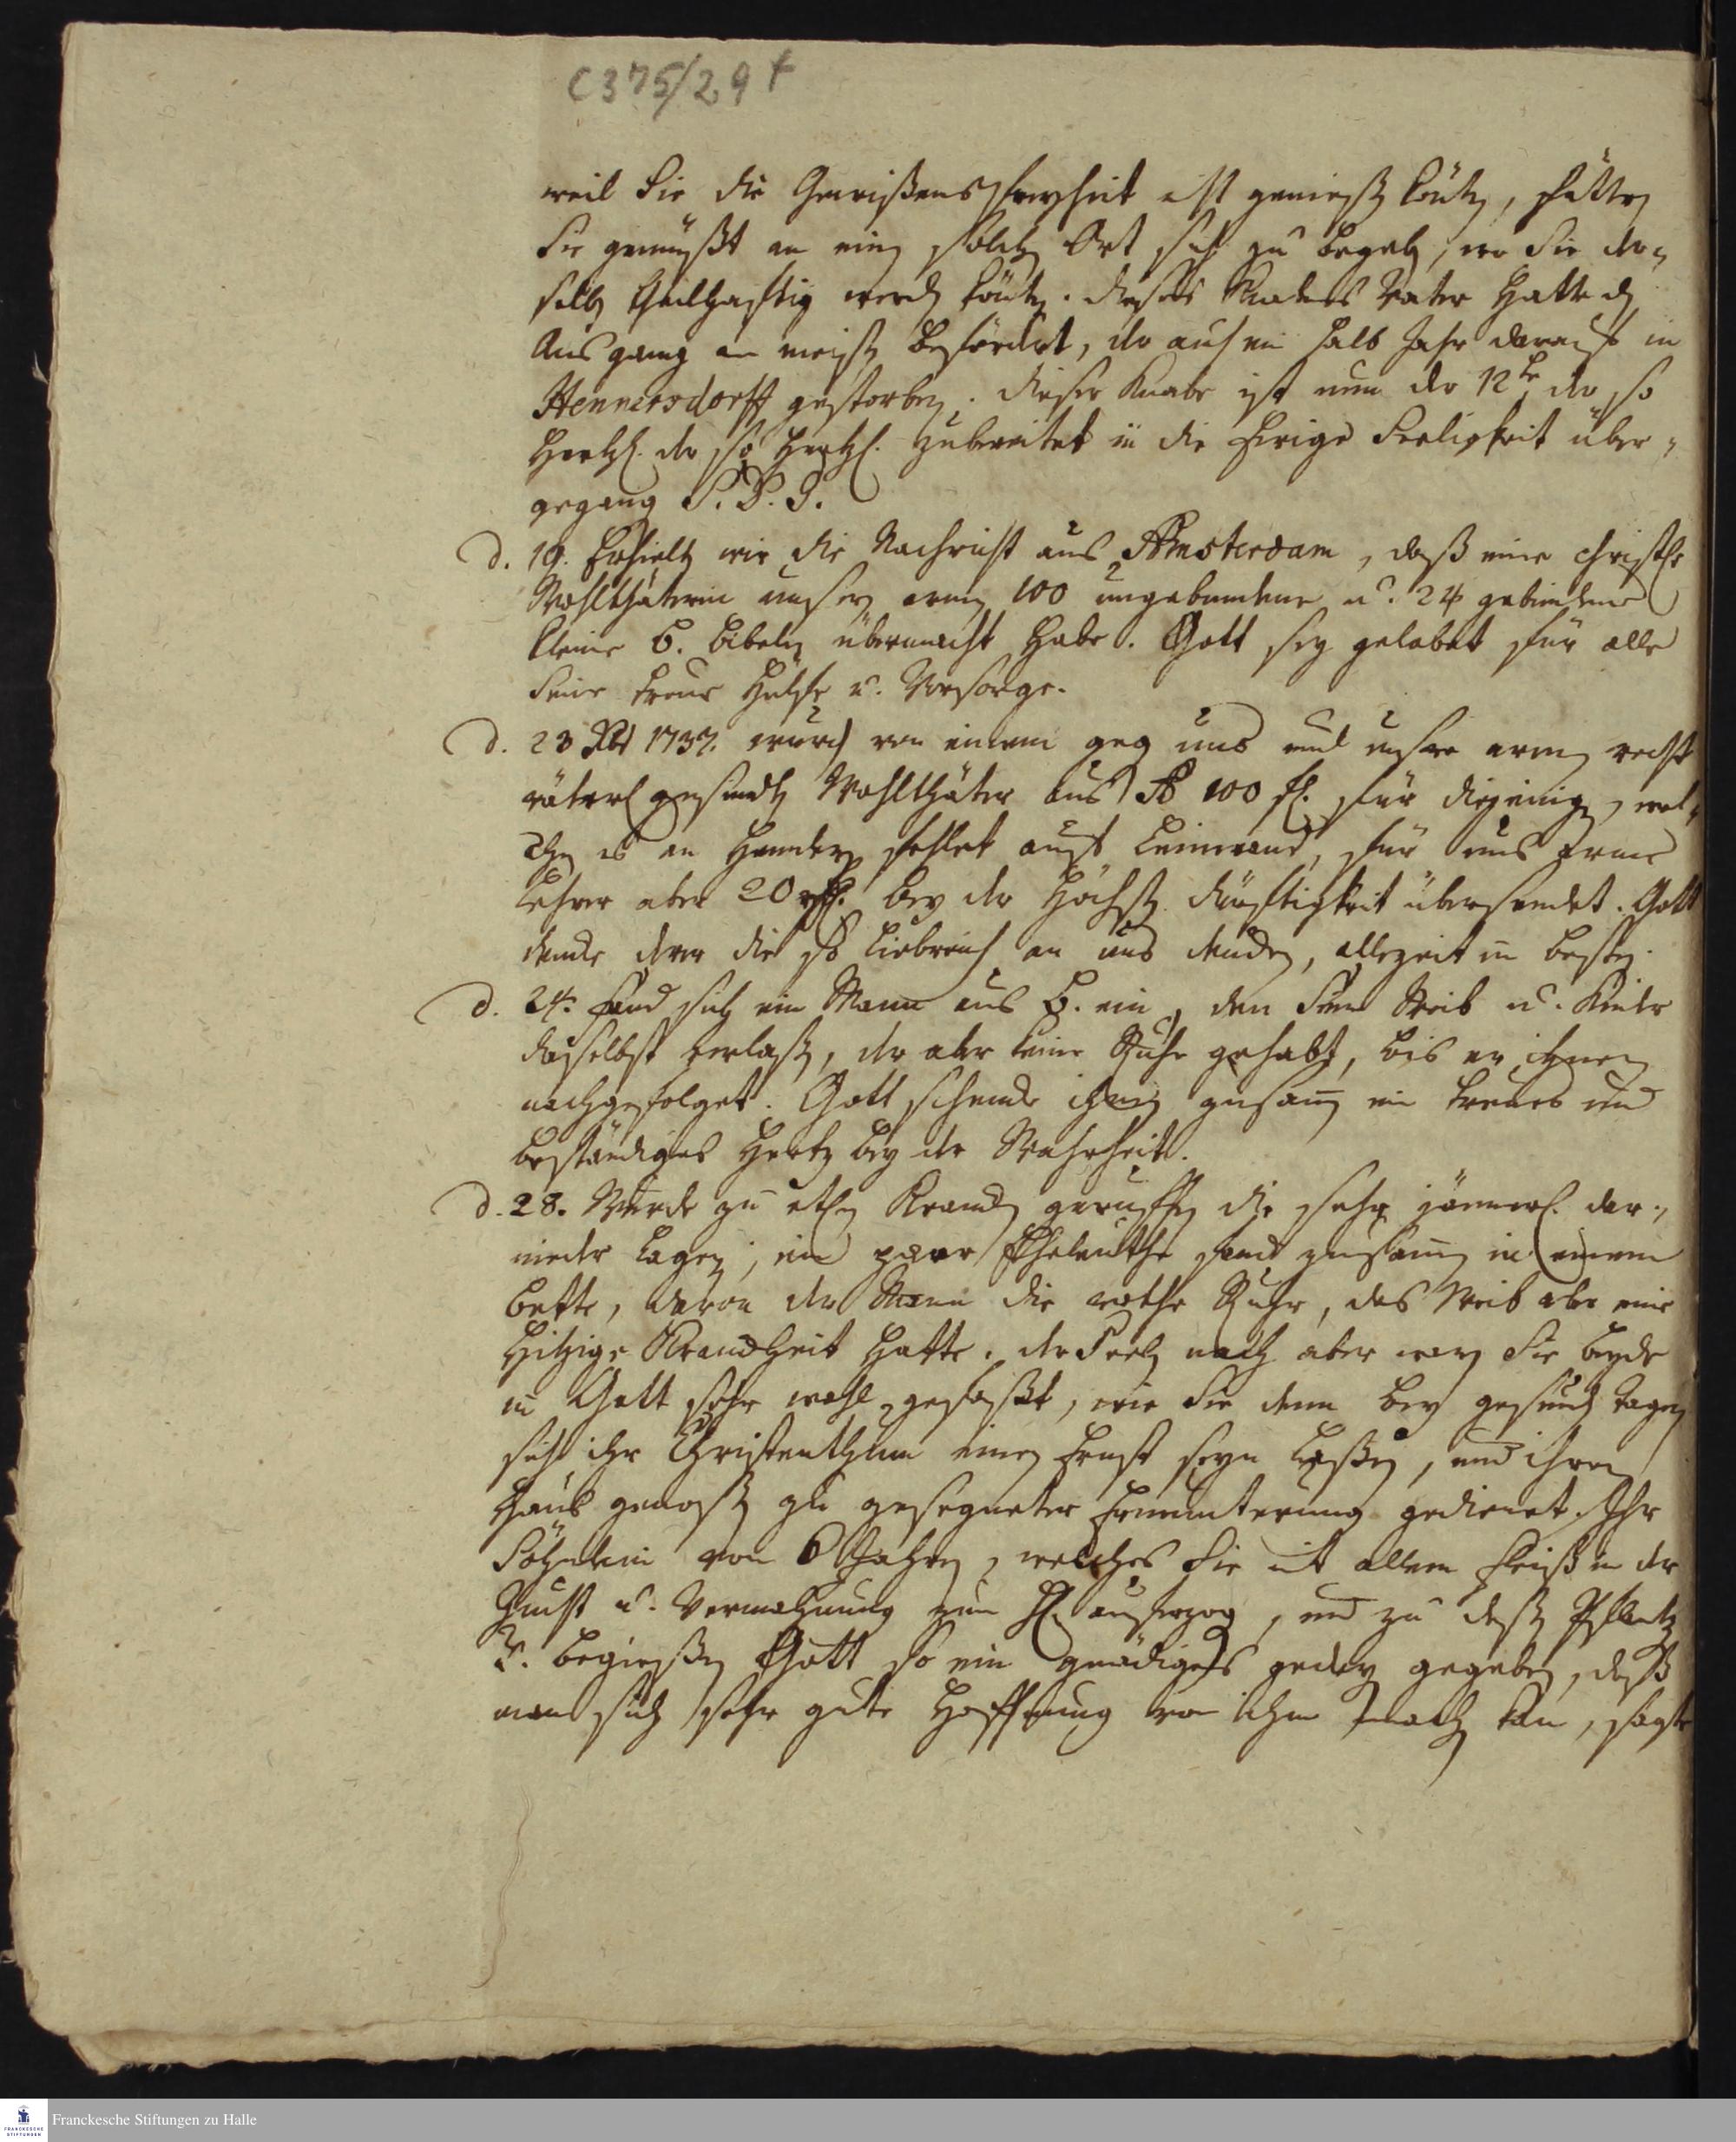 C 375/29 f
weil Sie die Gewißensfreyheit nicht genießen könten, hätten
Sie gemußt an einen solchen Ort sich zu begeben, wo Sie der¬
selben theilhafftig werden könten. Dieses Knabens Vater hatte den
Ausgang am meisten befördert, der auch ein halb Jahr darauf in
Hennersdorff gestorben. Dieser Knabe ist nun der 12te, der so
hertzl. der so hertzl. zubereitet in die ewige Seeligkeit über¬
gegangen S. D. G.
d. 19. Erhielten wir die Nachricht aus Amsterdam, daß eine christl.
Wohlthäterin unsern armen 100 ungebundene u. 24 gebundene
kleine B. Bibeln übermacht habe. Gott sey gelobet für alle
seine treue Hülfe u. Vorsorge.
d. 23 Xbr 1737. wurden von einem gegen uns und unsre armen recht
väterl. gesinneten Wohlthäter aus A 100 fl. für diejenigen, wel¬
chen es an Hembden fehlet auf Leinwand, für uns arme
Lehrer aber 20 rthl. bey der höchsten Dürftigkeit übersendet. Gott
dencke derer die so liebreich an uns dencken, allezeit im besten.
d. 24. fand sich ein Mann aus B. ein, den sein Weib u. Kinder
daselbst verlaßen, der aber keine Ruhe gehabt, bis er ihnen
nachgefolget. Gott schencke ihnen zusammen ein treues und
beständiges Hertz bey der Wahrheit.
d. 28. Wurde zu etlichen Krancken geruffen die sehr jämmerl. dar¬
nieder lagen; ein paar Eheleuthe fand zusammen in einem
Bette, davon der Mann die rothe Ruhr, das Weib aber eine
hitzige Kranckheit hatte. Der Seelen nach aber waren Sie beyde
in Gott sehr wohl gefaßt, wie Sie denn bey gesunden Tagen
sich ihr Christenthum einen Ernst seyn laßen, und ihren
Hausgenoßen zu gesegneter Ermunterung gedienet. Ihr
Söhnlein von 6 Jahren, welches Sie mit allem Fleiß in der
Zucht u. Vermahnung zum H. auferzogen, und zu deßen Pflantzen
u. begießen Gott so ein gnädiges gedeyen gegeben, daß
man sich sehr gute Hoffnung von ihm machen kan, sagte
Franckesche Stiftungen zu Halle